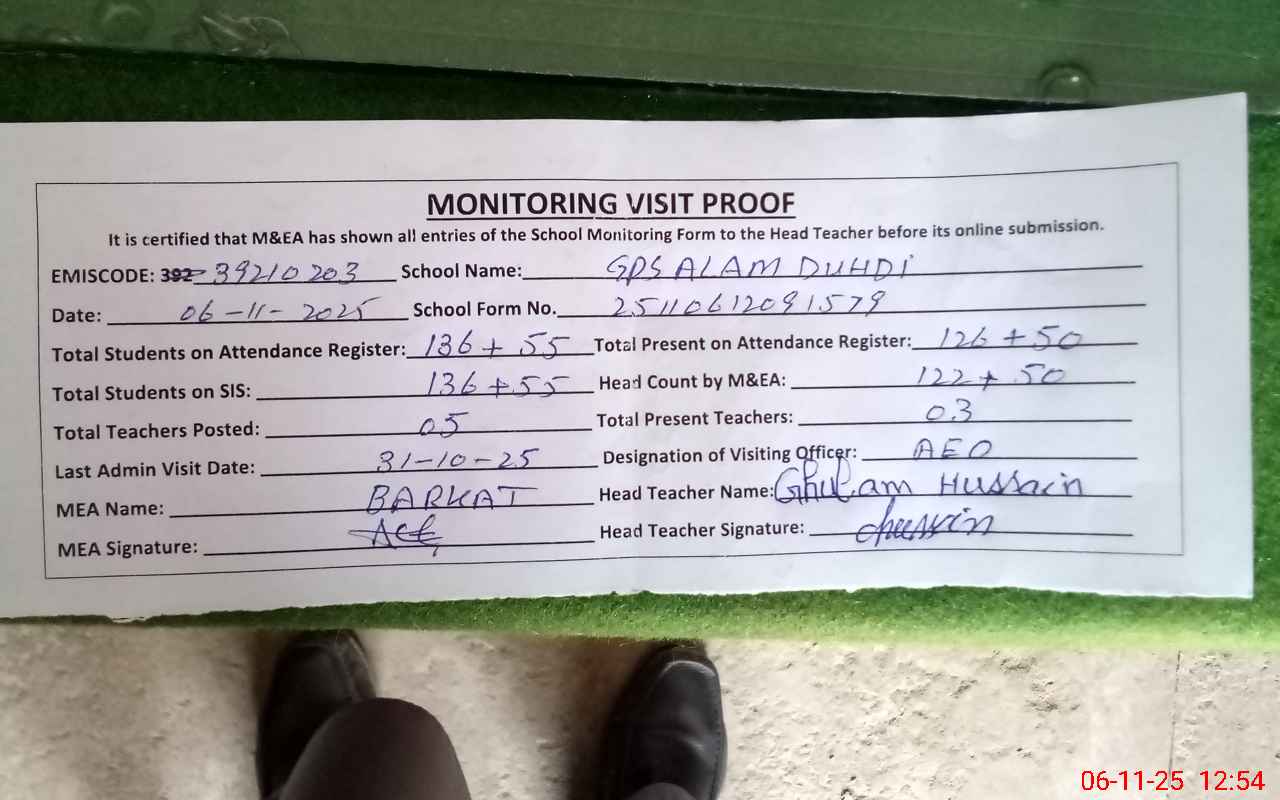 MONITORING VISIT PROOF
It is certified that M&EA has shown all entries of the School Monitoring Form to the Head Teacher before its online submission.
EMISCODE: 392 39210203 School Name: GPS ALAM DUHDI
Date: 06-11-2025 School Form No. 25110612091579
Total Students on Attendance Register: 136 + 55 Total Present on Attendance Register: 126 + 50
Total Students on SIS: 136 + 55 Head Count by M&EA: 122 + 50
Total Teachers Posted: 05 Total Present Teachers: 03
Last Admin Visit Date: 31-10-25 Designation of Visiting Officer: AEO
MEA Name: BARKAT Head Teacher Name: Ghulam Hussain
MEA Signature: Head Teacher Signature:
06-11-25 12:54